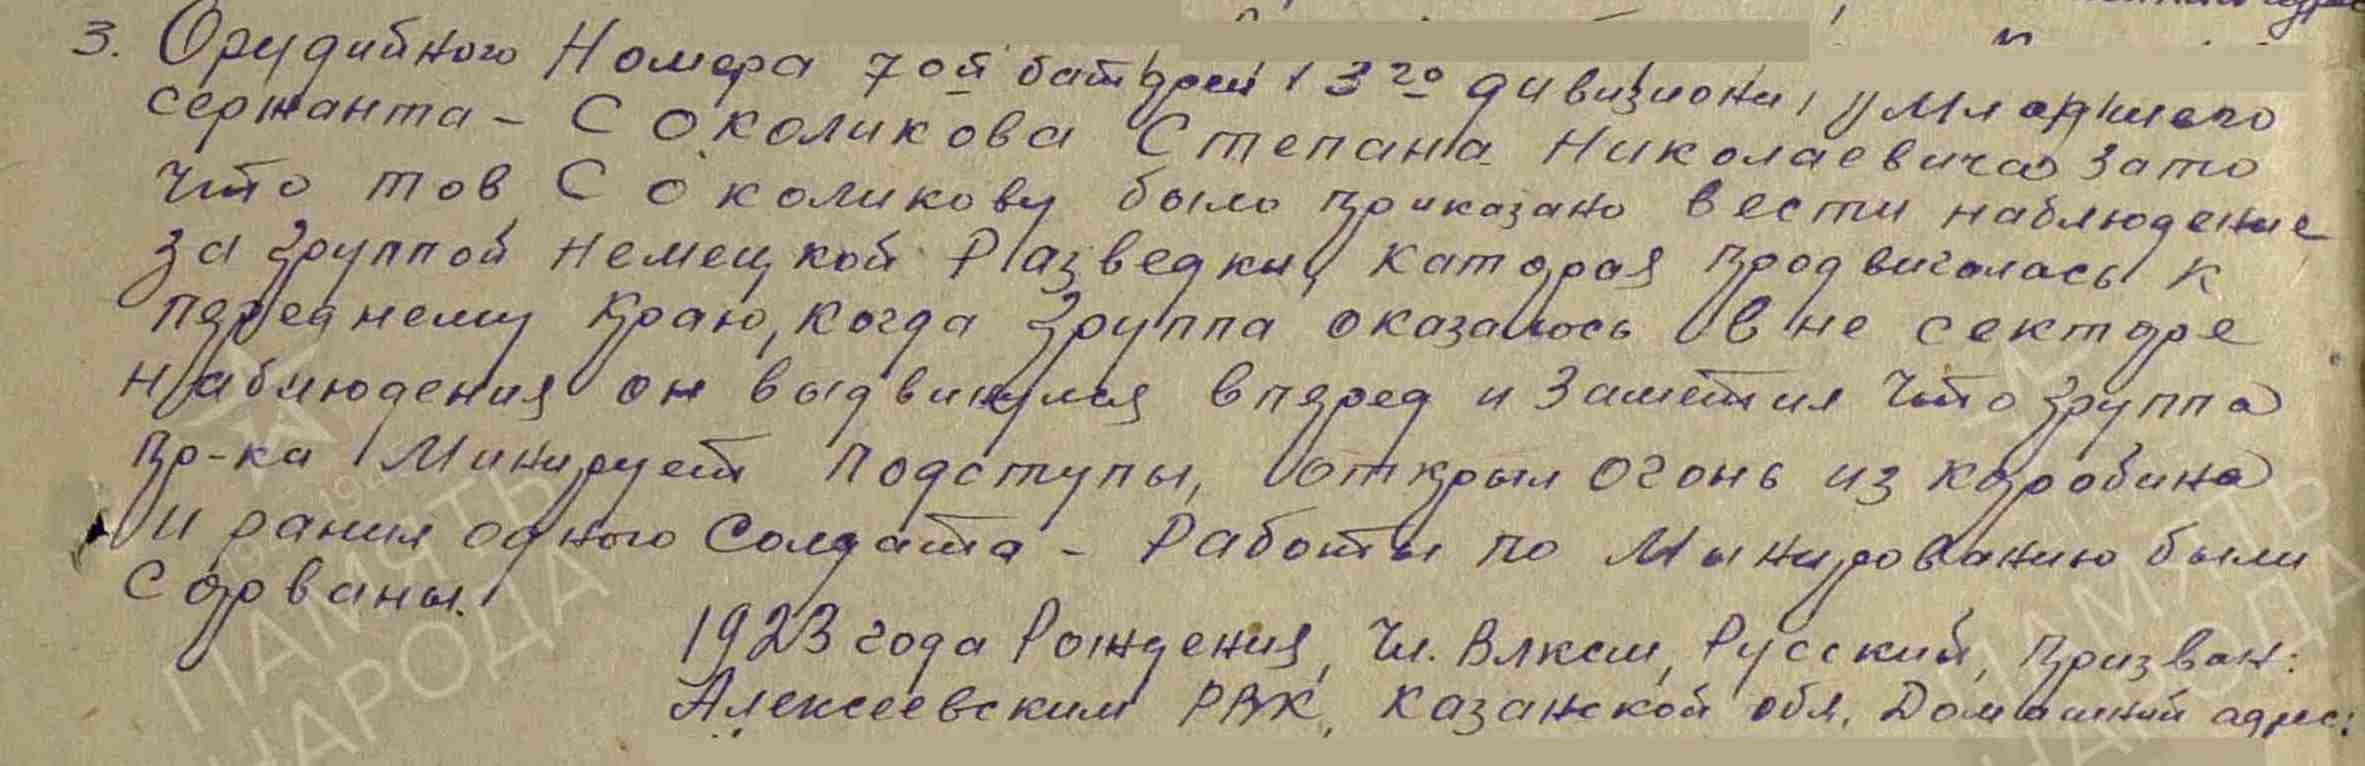 3. Орудийного Номера 7ой батареи 3го дивизиона, Младшего
сержанта - Соколикова Степана Николаевича за то
что тов Соколикову было приказано вести наблюдение
за группой немецкой Разведки, каторая продвигалась к
переднему краю, когда группа оказалось вне секторе
наблюдения он выдвинулся вперед и заметил что группа
пр-ка Минирует подступы, открыл огонь из каробина
и ранил одного Солдата - Работы по Минированию были
сорваны.
1923 года Рождения, Чл. Влксм, Русский, призван:
Алексеевским РВК, Казанской обл. Домашний адрес:
ПАМЯТЬ
НАРОДА
ПАМЯТЬ
НАРОДА